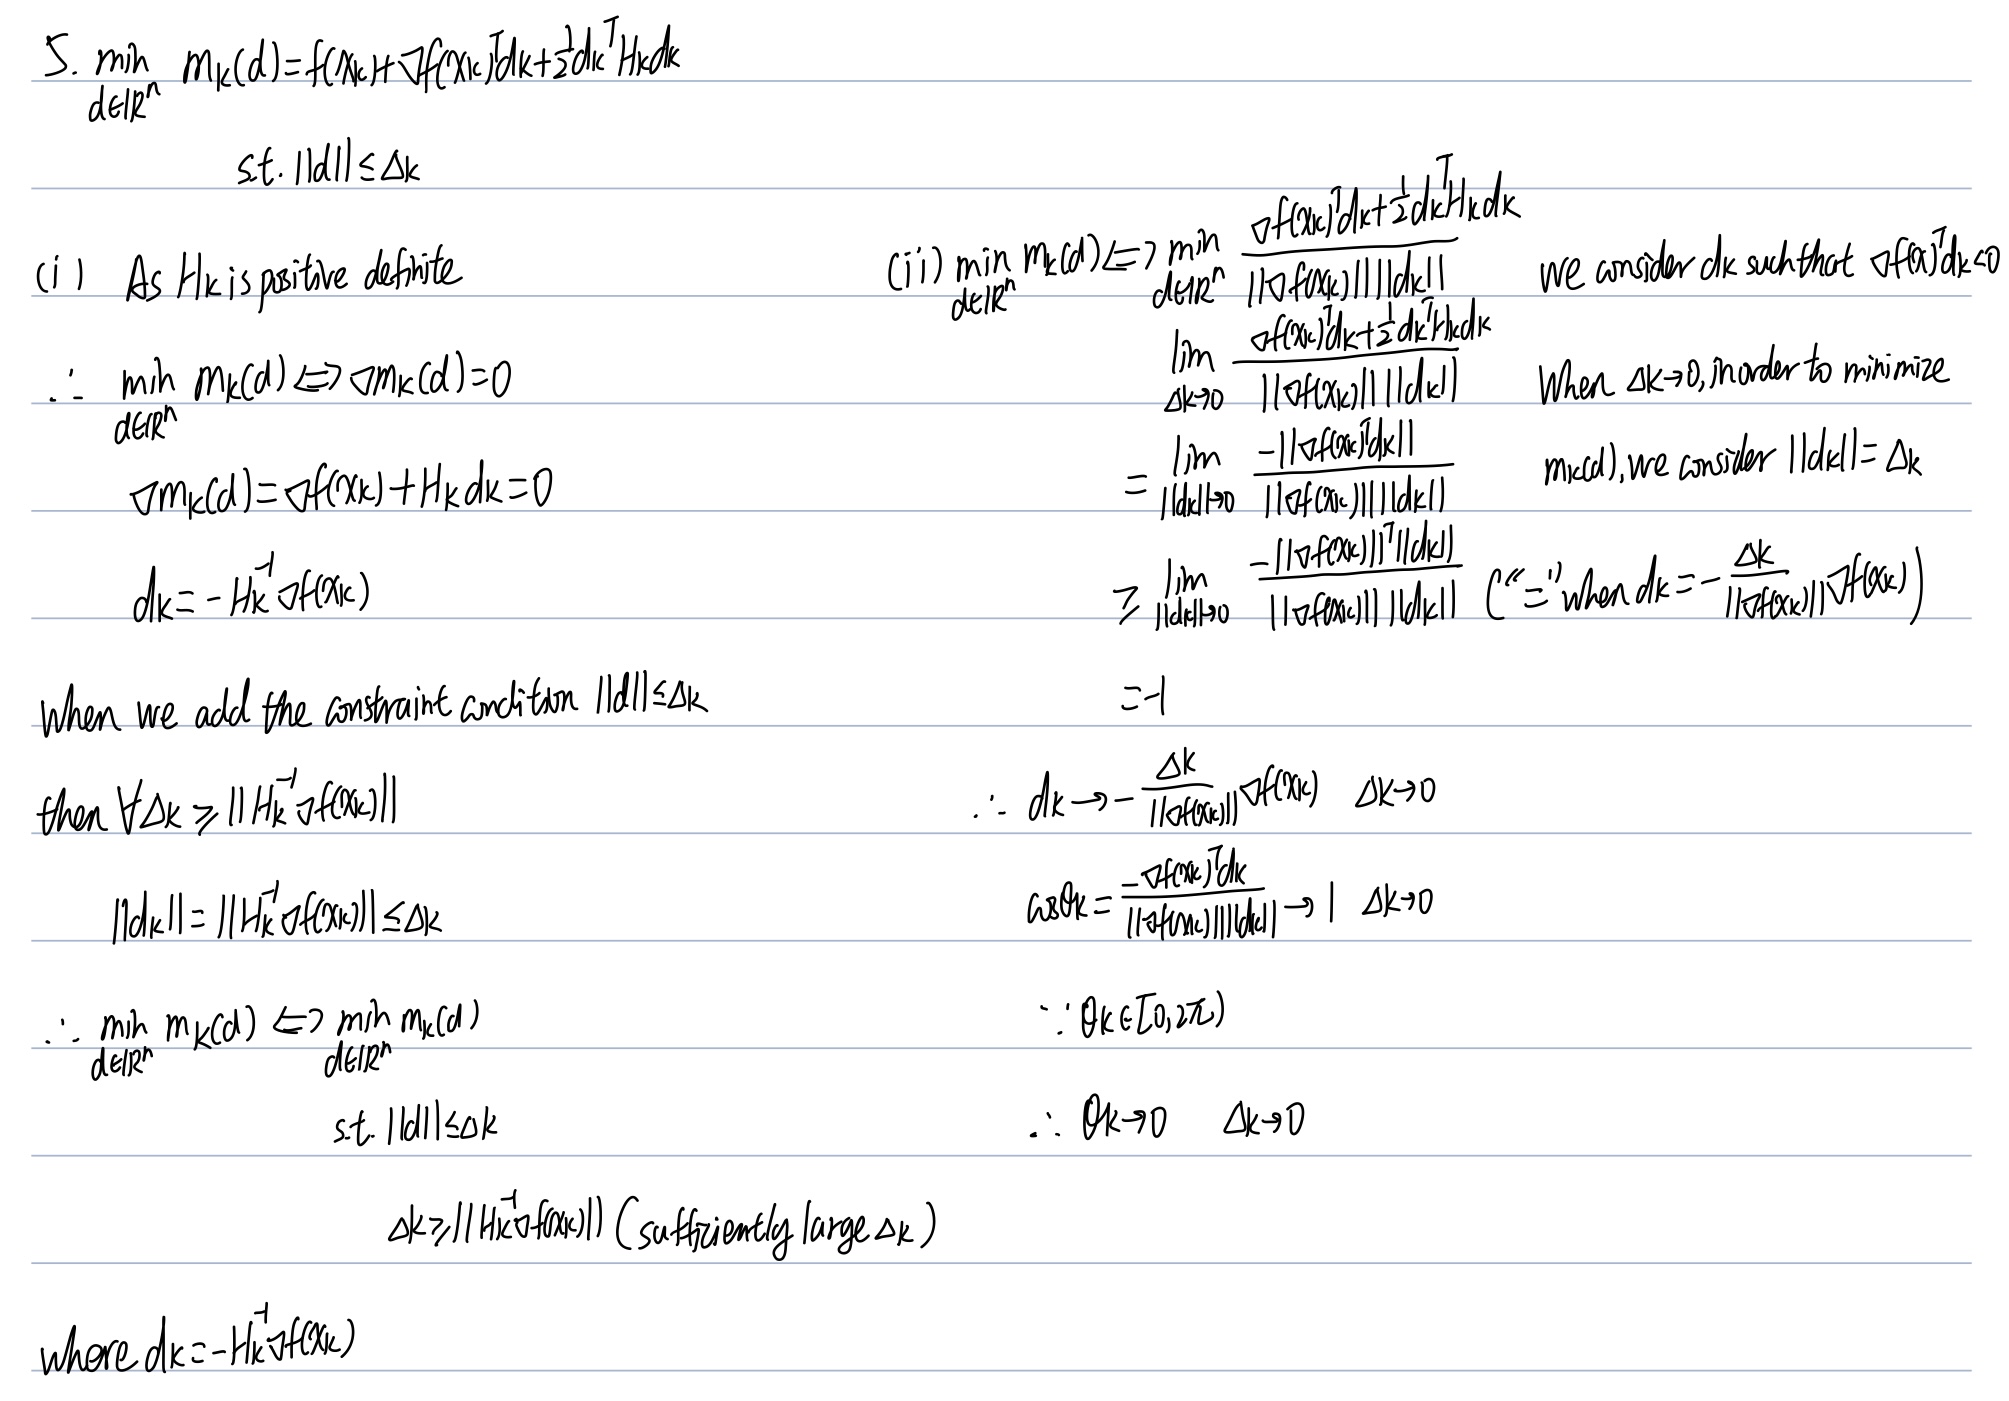 5. min m_k(d) = f(x_k) + ∇f(x_k)^T d_k + 1/2 d_k^T H_k d_k
d∈ℝ^n
s.t. ||d|| ≤ Δ_k
(i) As H_k is positive definite
∴ min m_k(d) ⇔ ∇m_k(d) = 0
d∈ℝ^n
∇m_k(d) = ∇f(x_k) + H_k d_k = 0
d_k = -H_k^-1 ∇f(x_k)
When we add the constraint condition ||d|| ≤ Δ_k
then ∀Δ_k ≥ ||H_k^-1 ∇f(x_k)||
||d_k|| = ||H_k^-1 ∇f(x_k)|| ≤ Δ_k
∴ min m_k(d) ⇔ min m_k(d)
d∈ℝ^n d∈ℝ^n
s.t. ||d|| ≤ Δ_k
Δ_k ≥ ||H_k^-1 ∇f(x_k)|| (sufficiently large Δ_k)
where d_k = -H_k^-1 ∇f(x_k)
(ii) min m_k(d) ⇔ min (∇f(x_k)^T d_k + 1/2 d_k^T H_k d_k) / (||∇f(x_k)|| ||d_k||) We consider d_k such that ∇f(x)^T d_k < 0
d∈ℝ^n d∈ℝ^n
lim Δ_k→0 (∇f(x_k)^T d_k + 1/2 d_k^T H_k d_k) / (||∇f(x_k)|| ||d_k||) When Δ_k→0, in order to minimize
= lim ||d_k||→0 (-||∇f(x_k)^T d_k||) / (||∇f(x_k)|| ||d_k||) m_k(d), we consider ||d_k|| = Δ_k
≥ lim ||d_k||→0 (-||∇f(x_k)||^T ||d_k||) / (||∇f(x_k)|| ||d_k||) ("=" when d_k = - Δ_k / ||∇f(x_k)|| ∇f(x_k))
= -1
∴ d_k → - Δ_k / ||∇f(x_k)|| ∇f(x_k) Δ_k→0
cosθ_k = (-∇f(x_k)^T d_k) / (||∇f(x_k)|| ||d_k||) → 1 Δ_k→0
∵ θ_k ∈ [0, 2π)
∴ θ_k→0 Δ_k→0